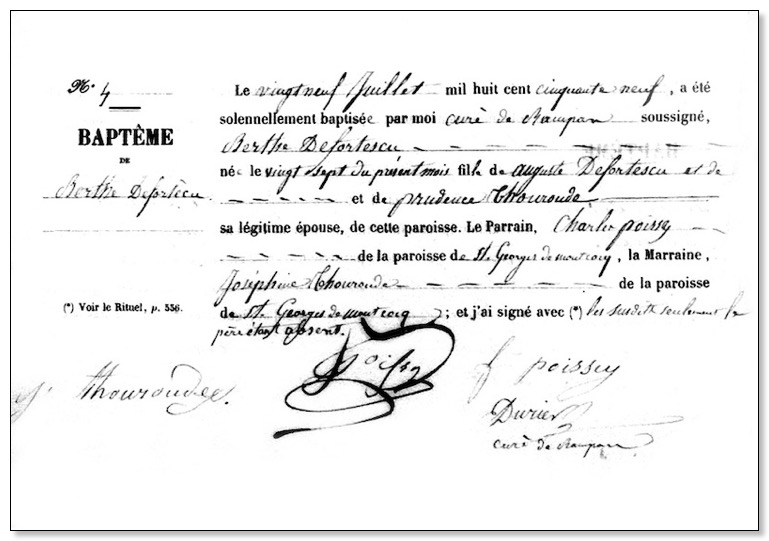 N.º 4
BAPTÊME
DE
Berthe Defortescu
(*) Voir le Rituel, p. 556.
Le vingt neuf Juillet mil huit cent cinquante neuf, a été
solennellement baptisée par moi curé de Rampan soussigné,
Berthe Defortescu
née le vingt sept du présent mois fille de auguste Defortescu et de
et de prudence Thouroude
sa légitime épouse, de cette paroisse. Le Parrain, Charles poissy
de la paroisse de Ste Georges de montcocq, la Marraine,
Joséphine Thouroude de la paroisse
de Ste Georges de montcocq ; et j'ai signé avec (*) les susdits seulement le
père étant absent.
Poissy
f poissy
j. thouroude.
Durier
curé de Rampan